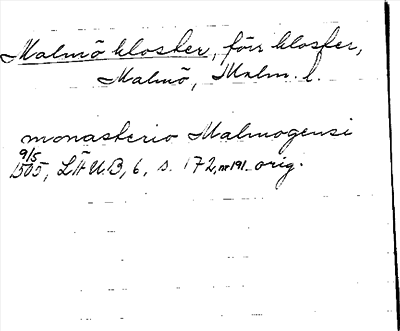 Malmö kloster, förr kloster,
Malmö, Malm. l.
monasterio Malmogensi
9/5
1505, LÄUB, 6, s. 172, nr 191. orig.